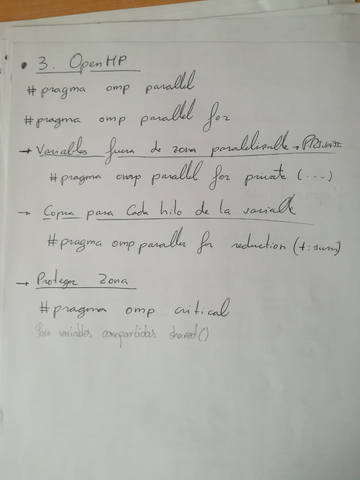 • 3. OpenMP
#pragma omp parallel
#pragma omp parallel for
→ Variables fuera de zona paralelizable → PRIVATE
#pragma omp parallel for private (...)
→ Copia para cada hilo de la variable
#pragma omp parallel for reduction (+:sum)
→ Proteger zona
#pragma omp critical
Para variables compartidas shared()